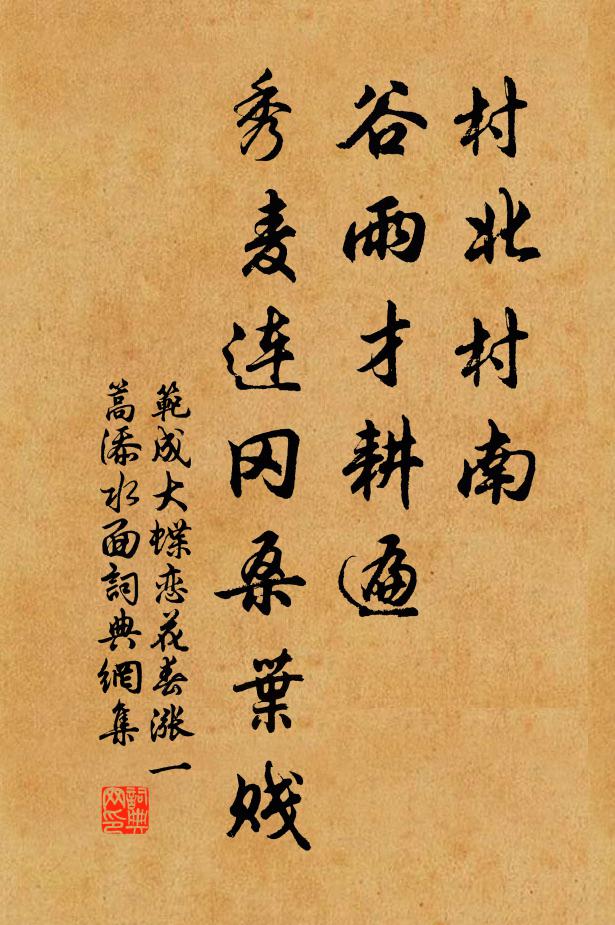 村北村南
谷雨才耕遍
秀麦连冈桑葉贱
範成大蝶恋花春涨一
篙添水面詞典網集
詞典
网印